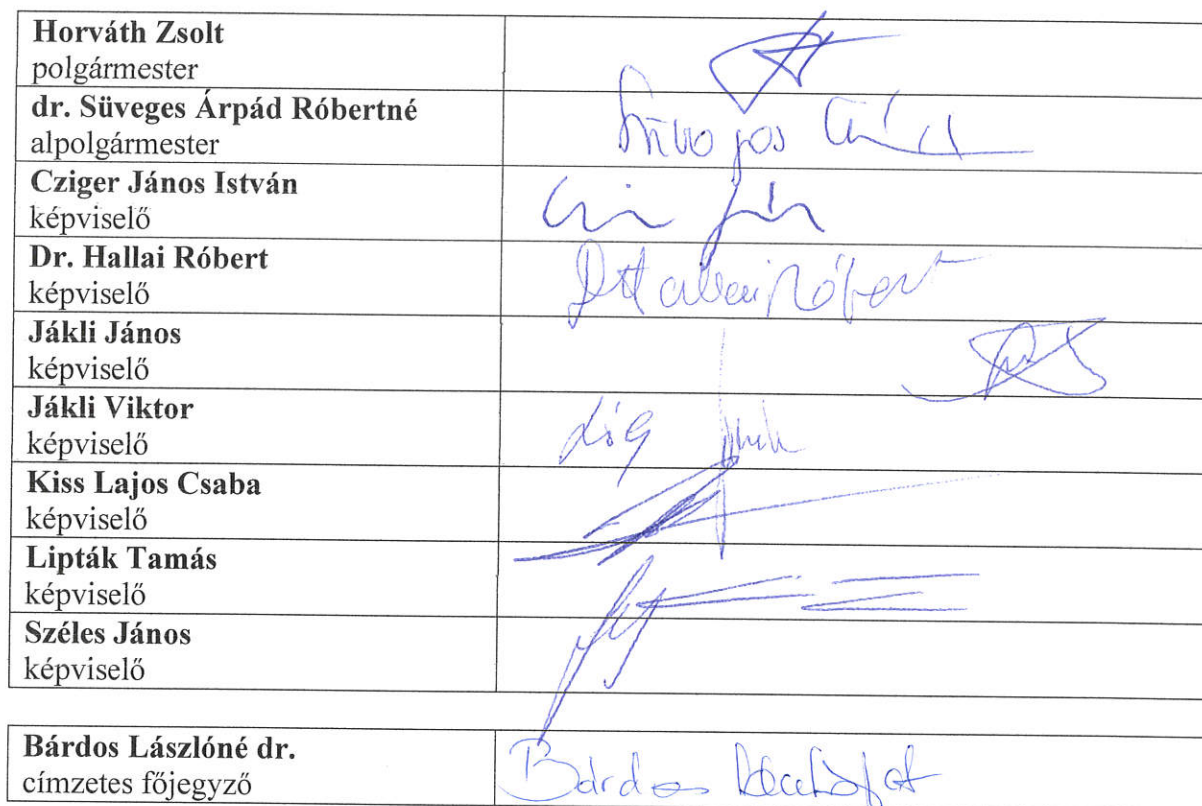 Horváth Zsolt
polgármester
dr. Süveges Árpád Róbertné
alpolgármester
Cziger János István
képviselő
Dr. Hallai Róbert
képviselő
Jákli János
képviselő
Jákli Viktor
képviselő
Kiss Lajos Csaba
képviselő
Lipták Tamás
képviselő
Széles János
képviselő
Bárdos Lászlóné dr.
címzetes főjegyző
Bárdos